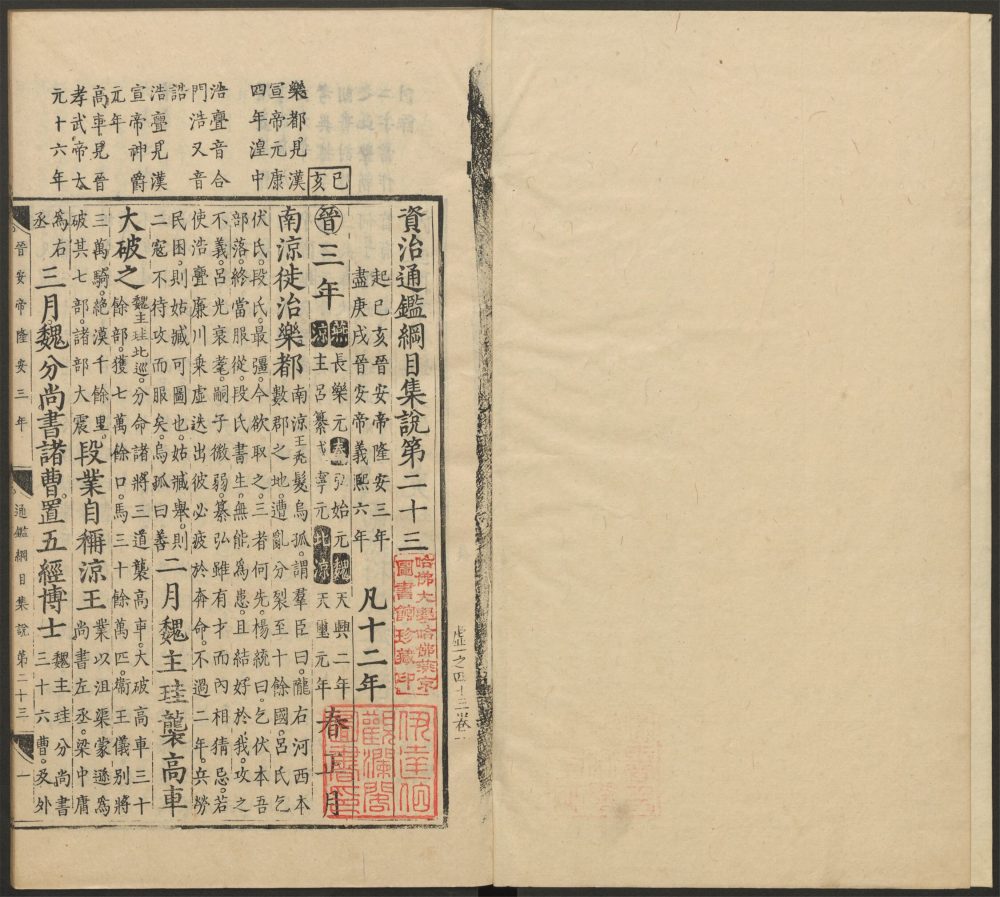 資治通鑑綱目集說第二十三
起己亥晉安帝隆安三年
盡庚戌晉安帝義熙六年
凡十二年
己亥
晉三年
燕長樂元秦弘始元魏天興二年
涼主呂纂咸寧元北涼天璽元年
春正月
南涼徙治樂都
南涼王禿髮烏孤謂羣臣曰隴右河西本
數郡之地遭亂分裂至十餘國呂氏乞
伏氏段氏最彊今欲取之三者何先楊統曰乞伏本吾
部落終當服從段氏書生無能為患且結好於我攻之
不義呂光衰耄嗣子微弱纂弘雖有才而內相猜忌若
使浩亹廉川乗虛迭出彼必疲於奔命不過二年兵勞
民困則姑臧可圖也姑臧舉則
二寇不待攻而服矣烏孤曰善
二月魏主珪襲高車
大破之
魏主珪北巡分命諸將三道襲高車大破高車三十
餘部獲七萬餘口馬三十餘萬匹衛王儀別將
三萬騎絕漠千餘里
破其七部諸部大震
段業自稱涼王
業以沮渠蒙遜為
尚書左丞梁中庸
為右
丞
三月魏分尚書諸曹置五經博士
魏主珪分尚書
三十六曹及外
樂都見漢
宣帝元康
四年湟中
浩亹音合
門浩又音
誥
浩亹見漢
宣帝神爵
元年
高車見晉
孝武帝太
元十六年
晉安帝隆安三年
通鑑綱目集說第二十三
一
哈佛大學哈佛燕京
圖書館珍藏印
觀瀾閣
圖書章